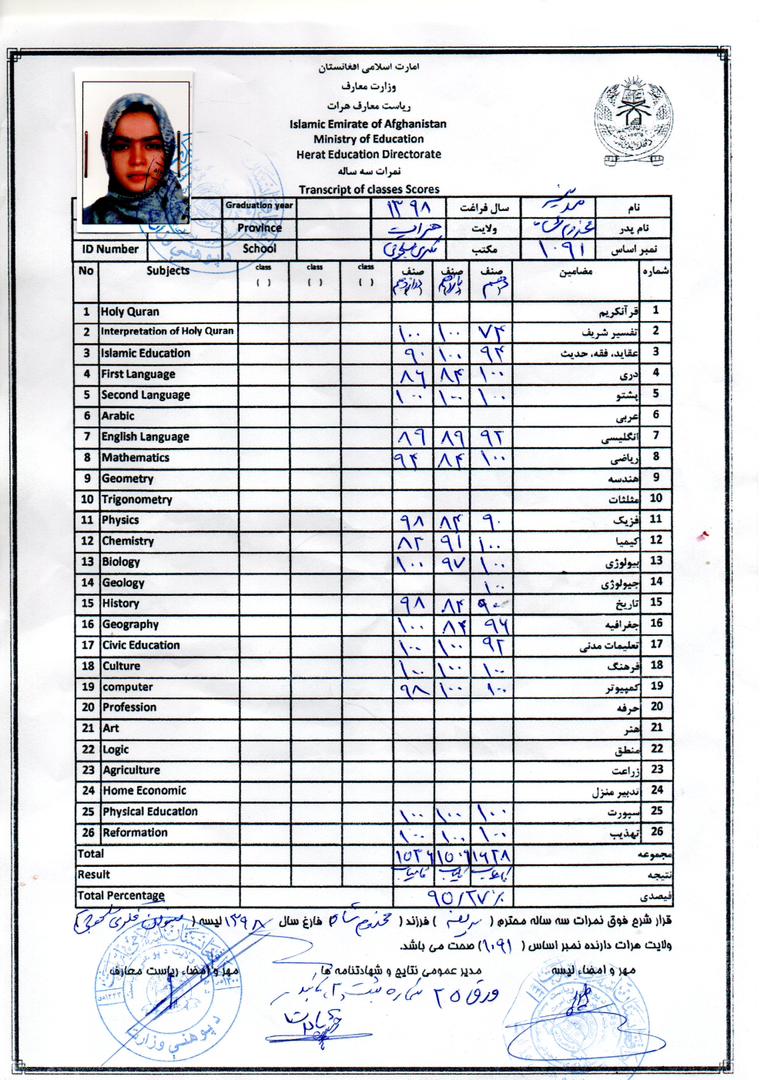 امارت اسلامی افغانستان
وزارت معارف
ریاست معارف هرات
Islamic Emirate of Afghanistan
Ministry of Education
Herat Education Directorate
نمرات سه ساله
Transcript of classes Scores
Graduation year ۱۳۹۸ سال فراغت نام
Province هرات ولایت نام پدر
ID Number School مکتب ۱۰۹۱ نمبر اساس
No Subjects class ( ) class ( ) class ( ) صنف صنف صنف مضامین شماره
1 Holy Quran قرآنکریم 1
2 Interpretation of Holy Quran ۱۰۰ ۱۰۰ ۷۴ تفسیر شریف 2
3 Islamic Education ۹۰ ۱۰۰ ۹۴ عقاید، فقه، حدیث 3
4 First Language ۸۶ ۸۴ ۱۰۰ دری 4
5 Second Language ۱۰۰ ۱۰۰ ۱۰۰ پشتو 5
6 Arabic عربی 6
7 English Language ۸۹ ۸۹ ۹۲ انگلیسی 7
8 Mathematics ۹۴ ۸۴ ۱۰۰ ریاضی 8
9 Geometry هندسه 9
10 Trigonometry مثلثات 10
11 Physics ۹۸ ۸۴ ۹۰ فزیک 11
12 Chemistry ۸۲ ۹۱ ۱۰۰ کیمیا 12
13 Biology ۱۰۰ ۹۷ ۱۰۰ بیولوژی 13
14 Geology ۱۰۰ جیولوژی 14
15 History ۹۸ ۸۴ ۹۰ تاریخ 15
16 Geography ۱۰۰ ۸۴ ۹۶ جغرافیه 16
17 Civic Education ۱۰۰ ۱۰۰ ۹۲ تعلیمات مدنی 17
18 Culture ۱۰۰ ۱۰۰ ۱۰۰ فرهنگ 18
19 computer ۹۸ ۱۰۰ ۱۰۰ کمپیوتر 19
20 Profession حرفه 20
21 Art هنر 21
22 Logic منطق 22
23 Agriculture زراعت 23
24 Home Economic تدبیر منزل 24
25 Physical Education ۱۰۰ ۱۰۰ ۱۰۰ سپورت 25
26 Reformation ۱۰۰ ۱۰۰ ۱۰۰ تهذیب 26
Total ۱۵۳۶ ۱۵۰۶ ۱۶۲۸ مجموعه
Result کامیاب نتیجه
Total Percentage ۹۵/۲۷٪ فیصدی
قرار شرح فوق نمرات سه ساله محترم ( ) فرزند ( ) فارغ سال ۱۳۹۸ لیسه ( )
ولایت هرات دارنده نمبر اساس ( ۱۰۹۱ ) صحت می باشد.
مهر و امضاء لیسه مدیر عمومی نتایج و شهادتنامه ها مهر و امضاء ریاست معارف
ورق ۲۵